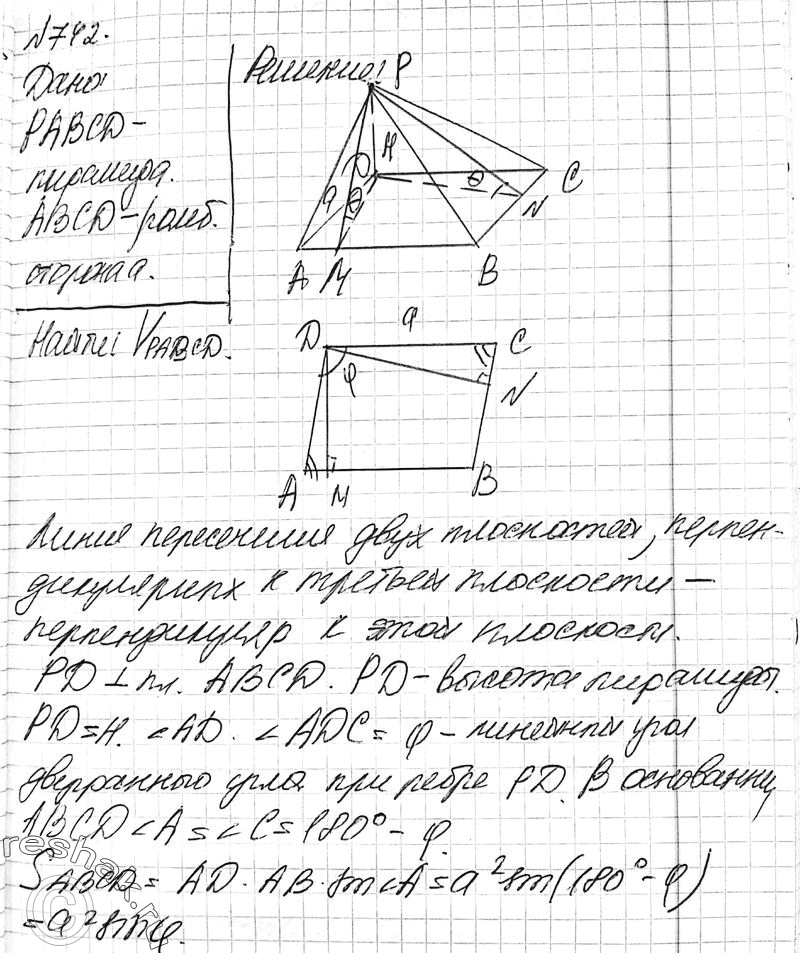 №742.
Дано
PABCD –
пирамида.
ABCD – ромб.
сторона a.
Найти: V_PABCD.
Решение:
P
H
D
C
a
θ
θ
N
A M B
a
D C
φ
N
A M B
Линия пересечения двух плоскостей, перпен-
дикулярных к третьей плоскости –
перпендикуляр к этой плоскости.
PD ⊥ пл. ABCD. PD – высота пирамиды.
PD = H. <AD. <ADC = φ – линейный угол
двугранного угла при ребре PD. В основании,
ABCD <A = <C = 180° – φ.
S_ABCD = AD · AB · sin<A = a² sin(180° – φ)
= a² sinφ.
reshak.ru
©